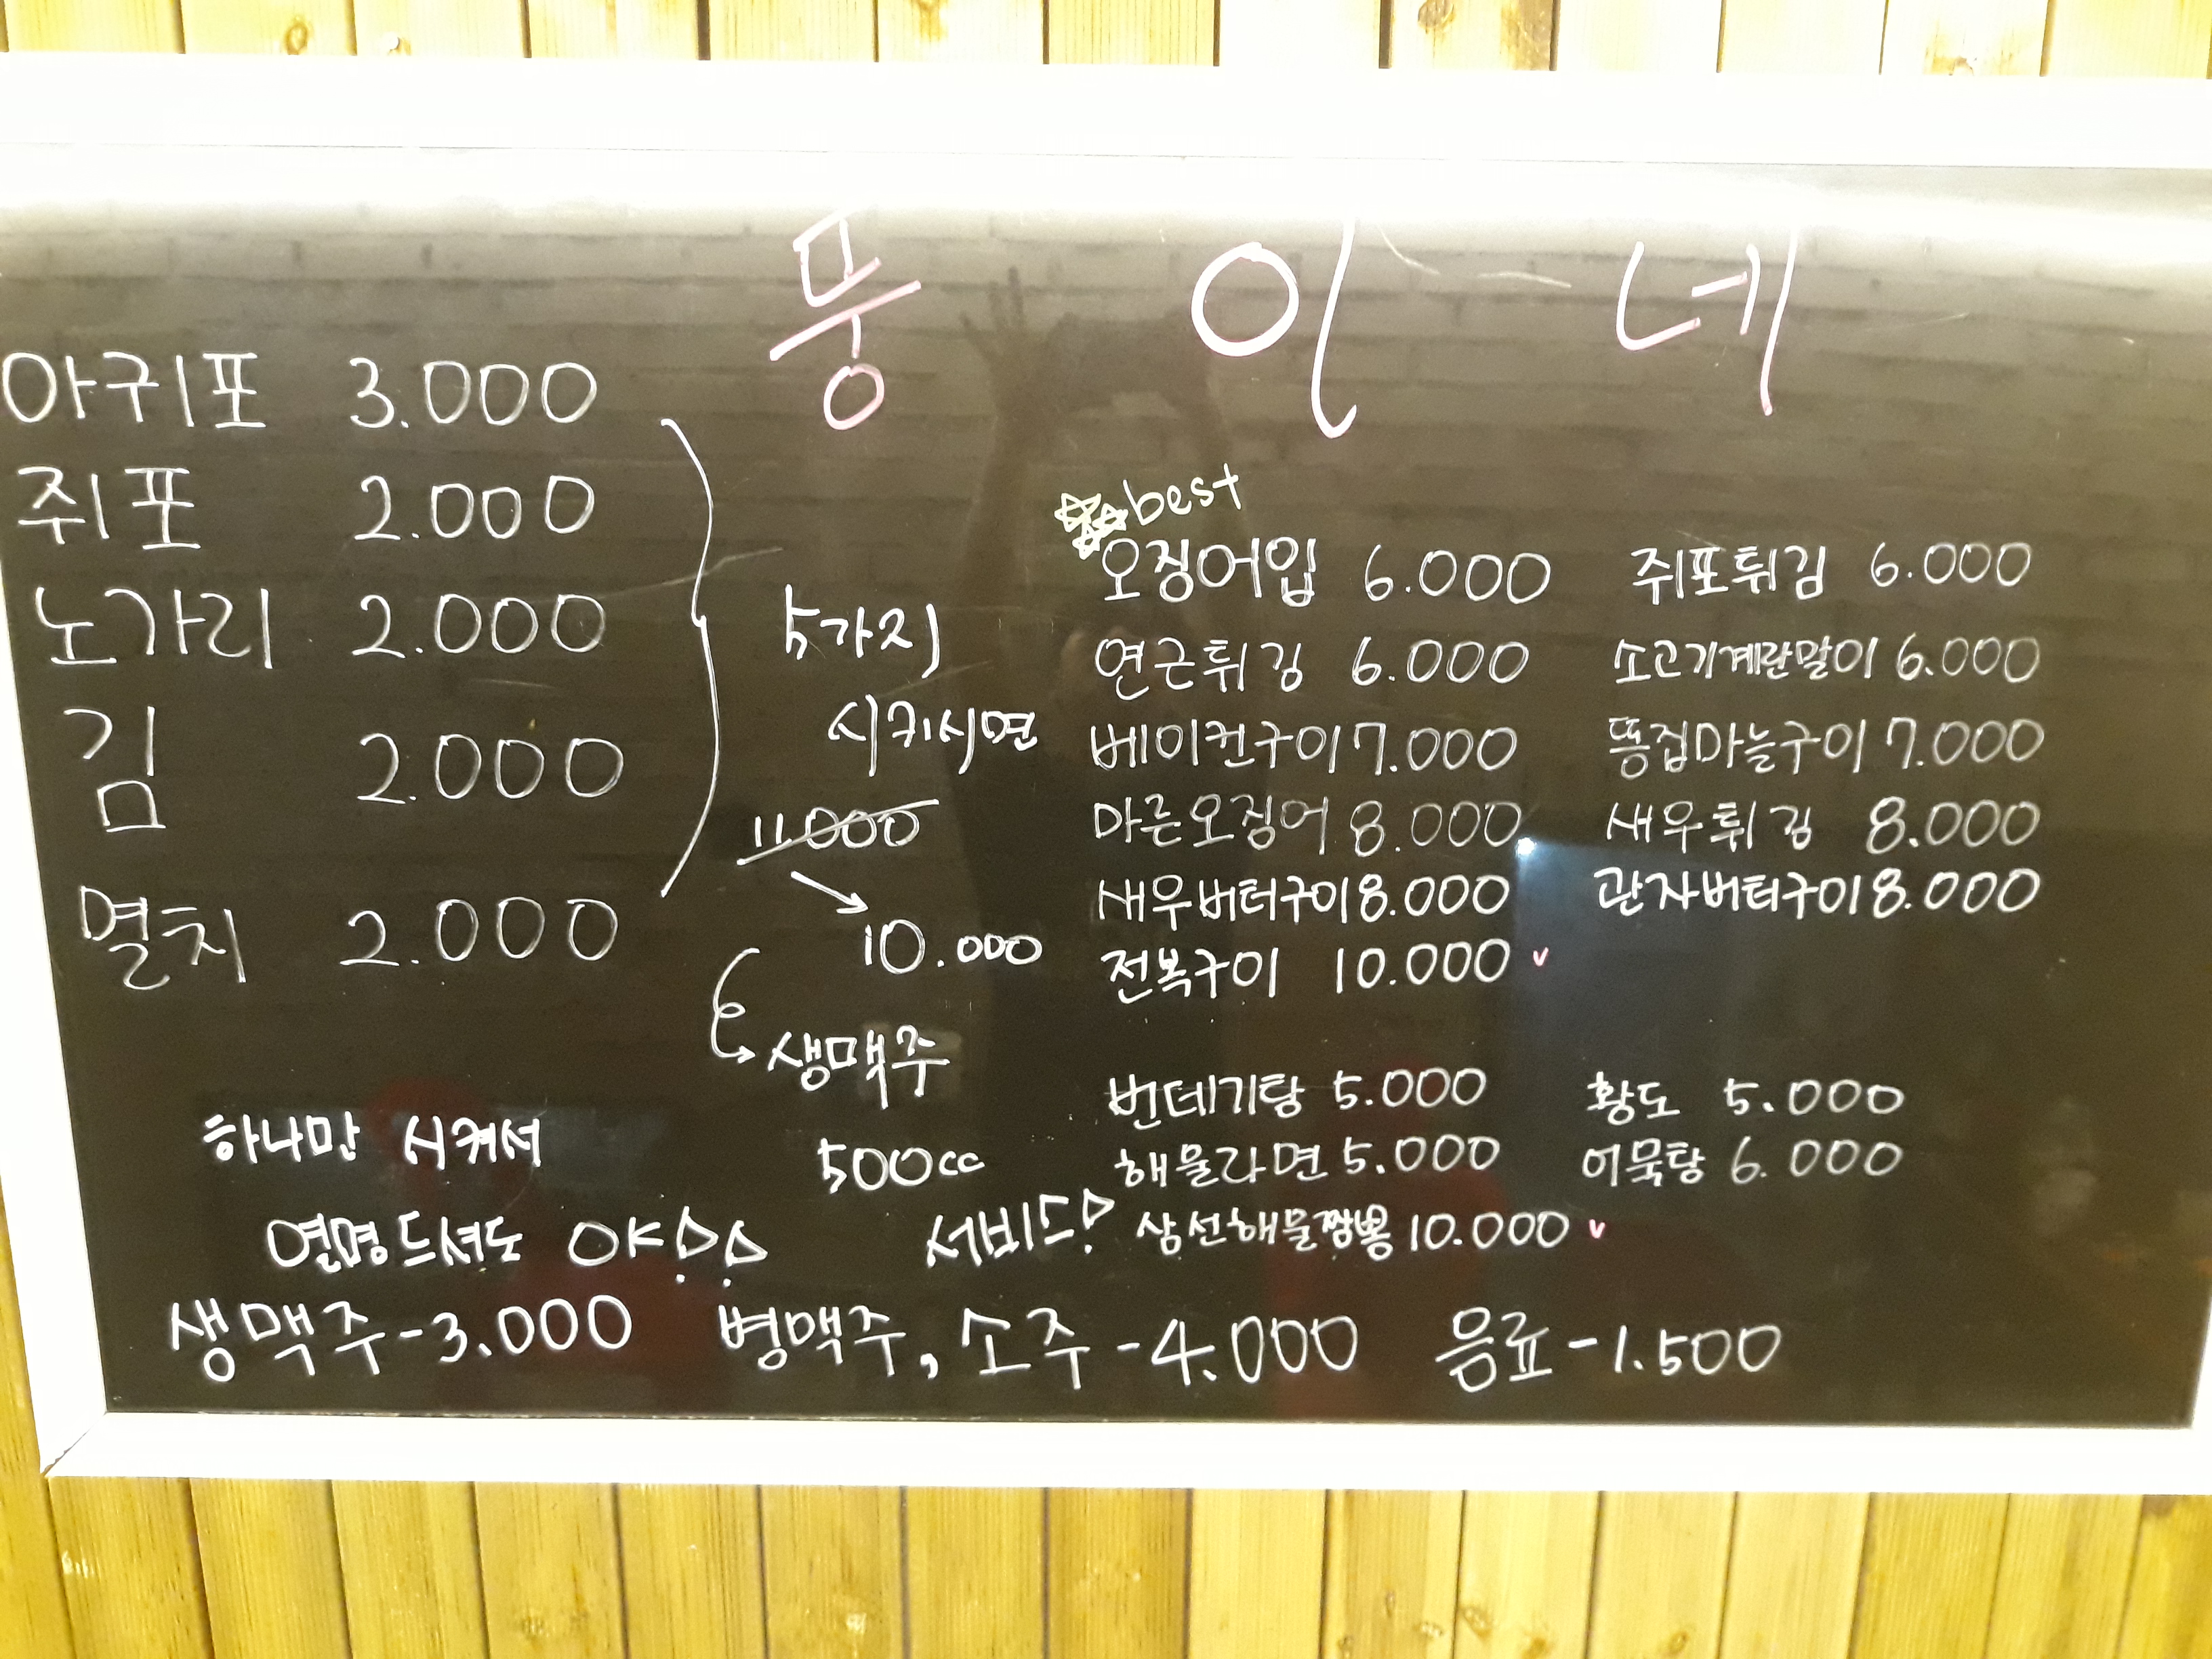 뭉이네
아귀포 3.000
쥐포 2.000
노가리 2.000
김 2.000
멸치 2.000
5가지
시키시면
11.000
10.000
생맥주
500cc
서비스!
하나만 시켜서
열명드셔도 OK!!
best
오징어입 6.000
연근튀김 6.000
베이컨구이 7.000
마른오징어 8.000
새우버터구이 8.000
전복구이 10.000
쥐포튀김 6.000
소고기계란말이 6.000
똥집마늘구이 7.000
새우튀김 8.000
관자버터구이 8.000
번데기탕 5.000
해물라면 5.000
삼선해물짬뽕 10.000
황도 5.000
어묵탕 6.000
생맥주-3.000 병맥주, 소주-4.000 음료-1.500